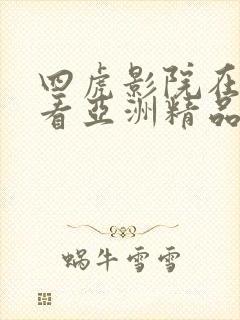 四虎影院在
看亚洲精品
蜗牛雪雪